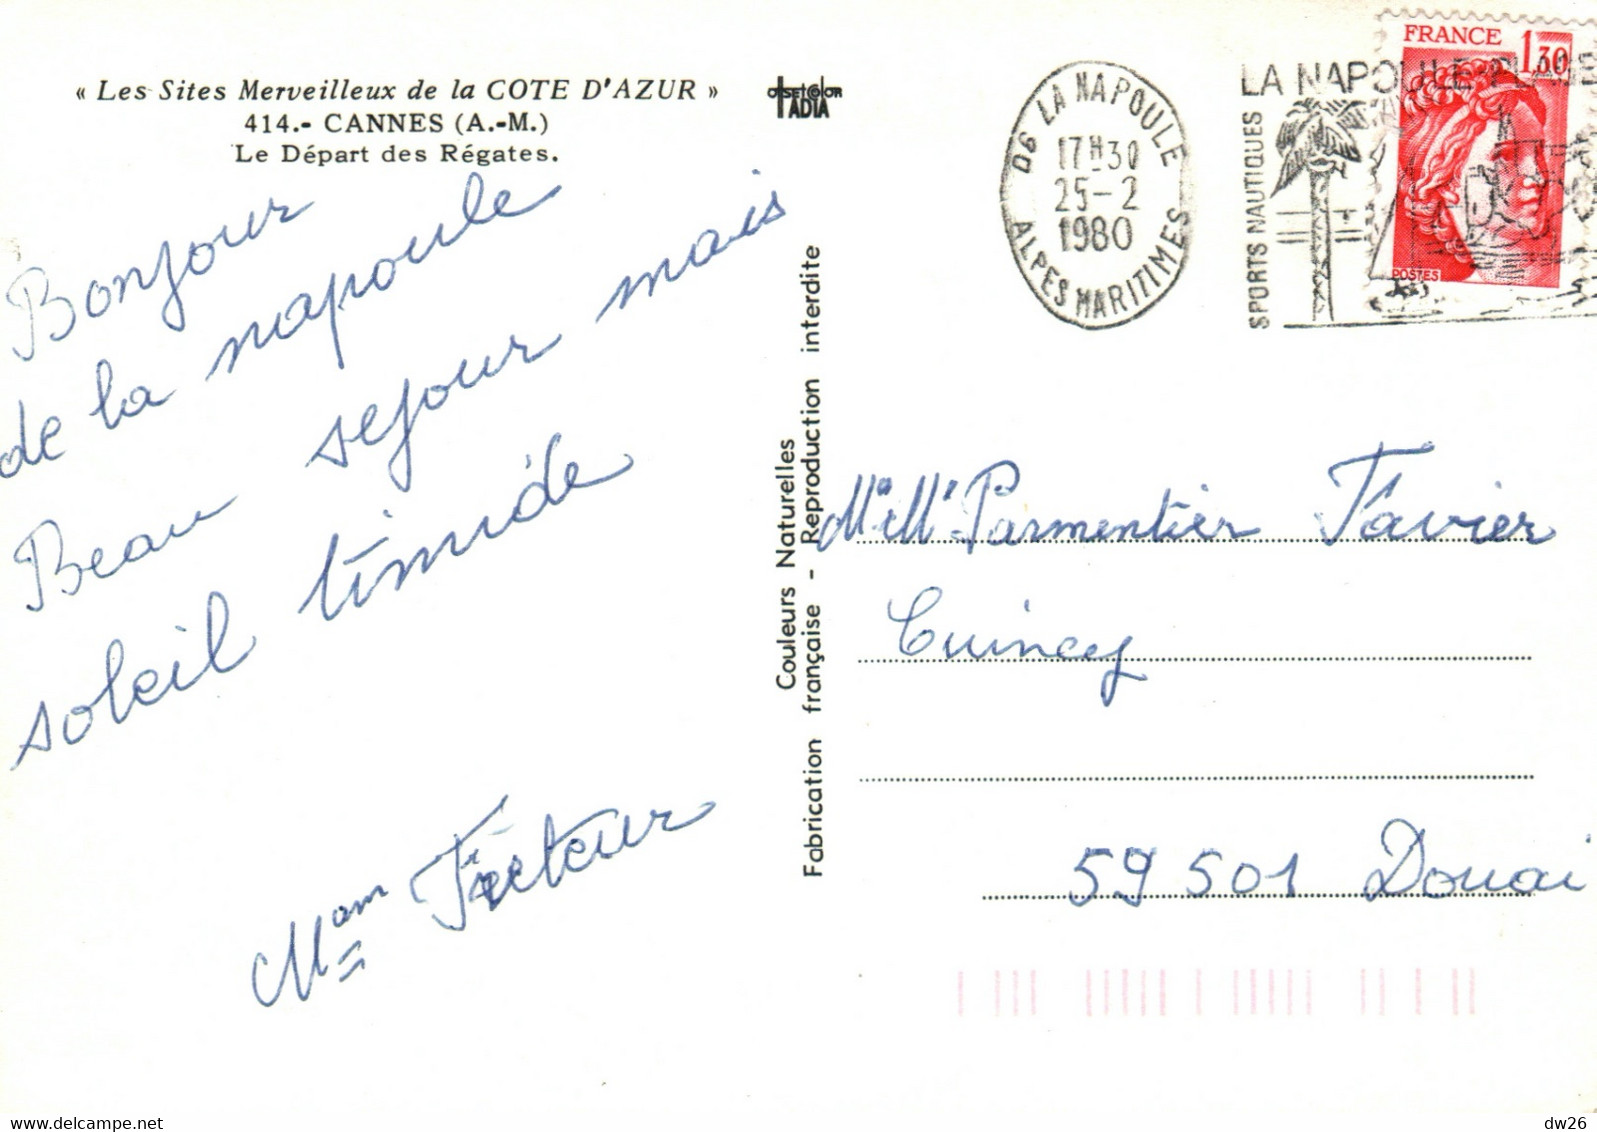 « Les Sites Merveilleux de la COTE D'AZUR »
414.- CANNES (A.-M.)
Le Départ des Régates.
Bonjour
de la napoule
Beau sejour mais
soleil timide
Mam Facteur
offsetcolor
TADIA
Couleurs Naturelles
Fabrication française - Reproduction interdite
06 LA NAPOULE
17H30
25-2
1980
ALPES MARITIMES
LA NAPOULE
SPORTS NAUTIQUES
FRANCE 1,30
POSTES
Parmentier Favier
Cuincy
59 501 Douai
delcampe.net
dw26